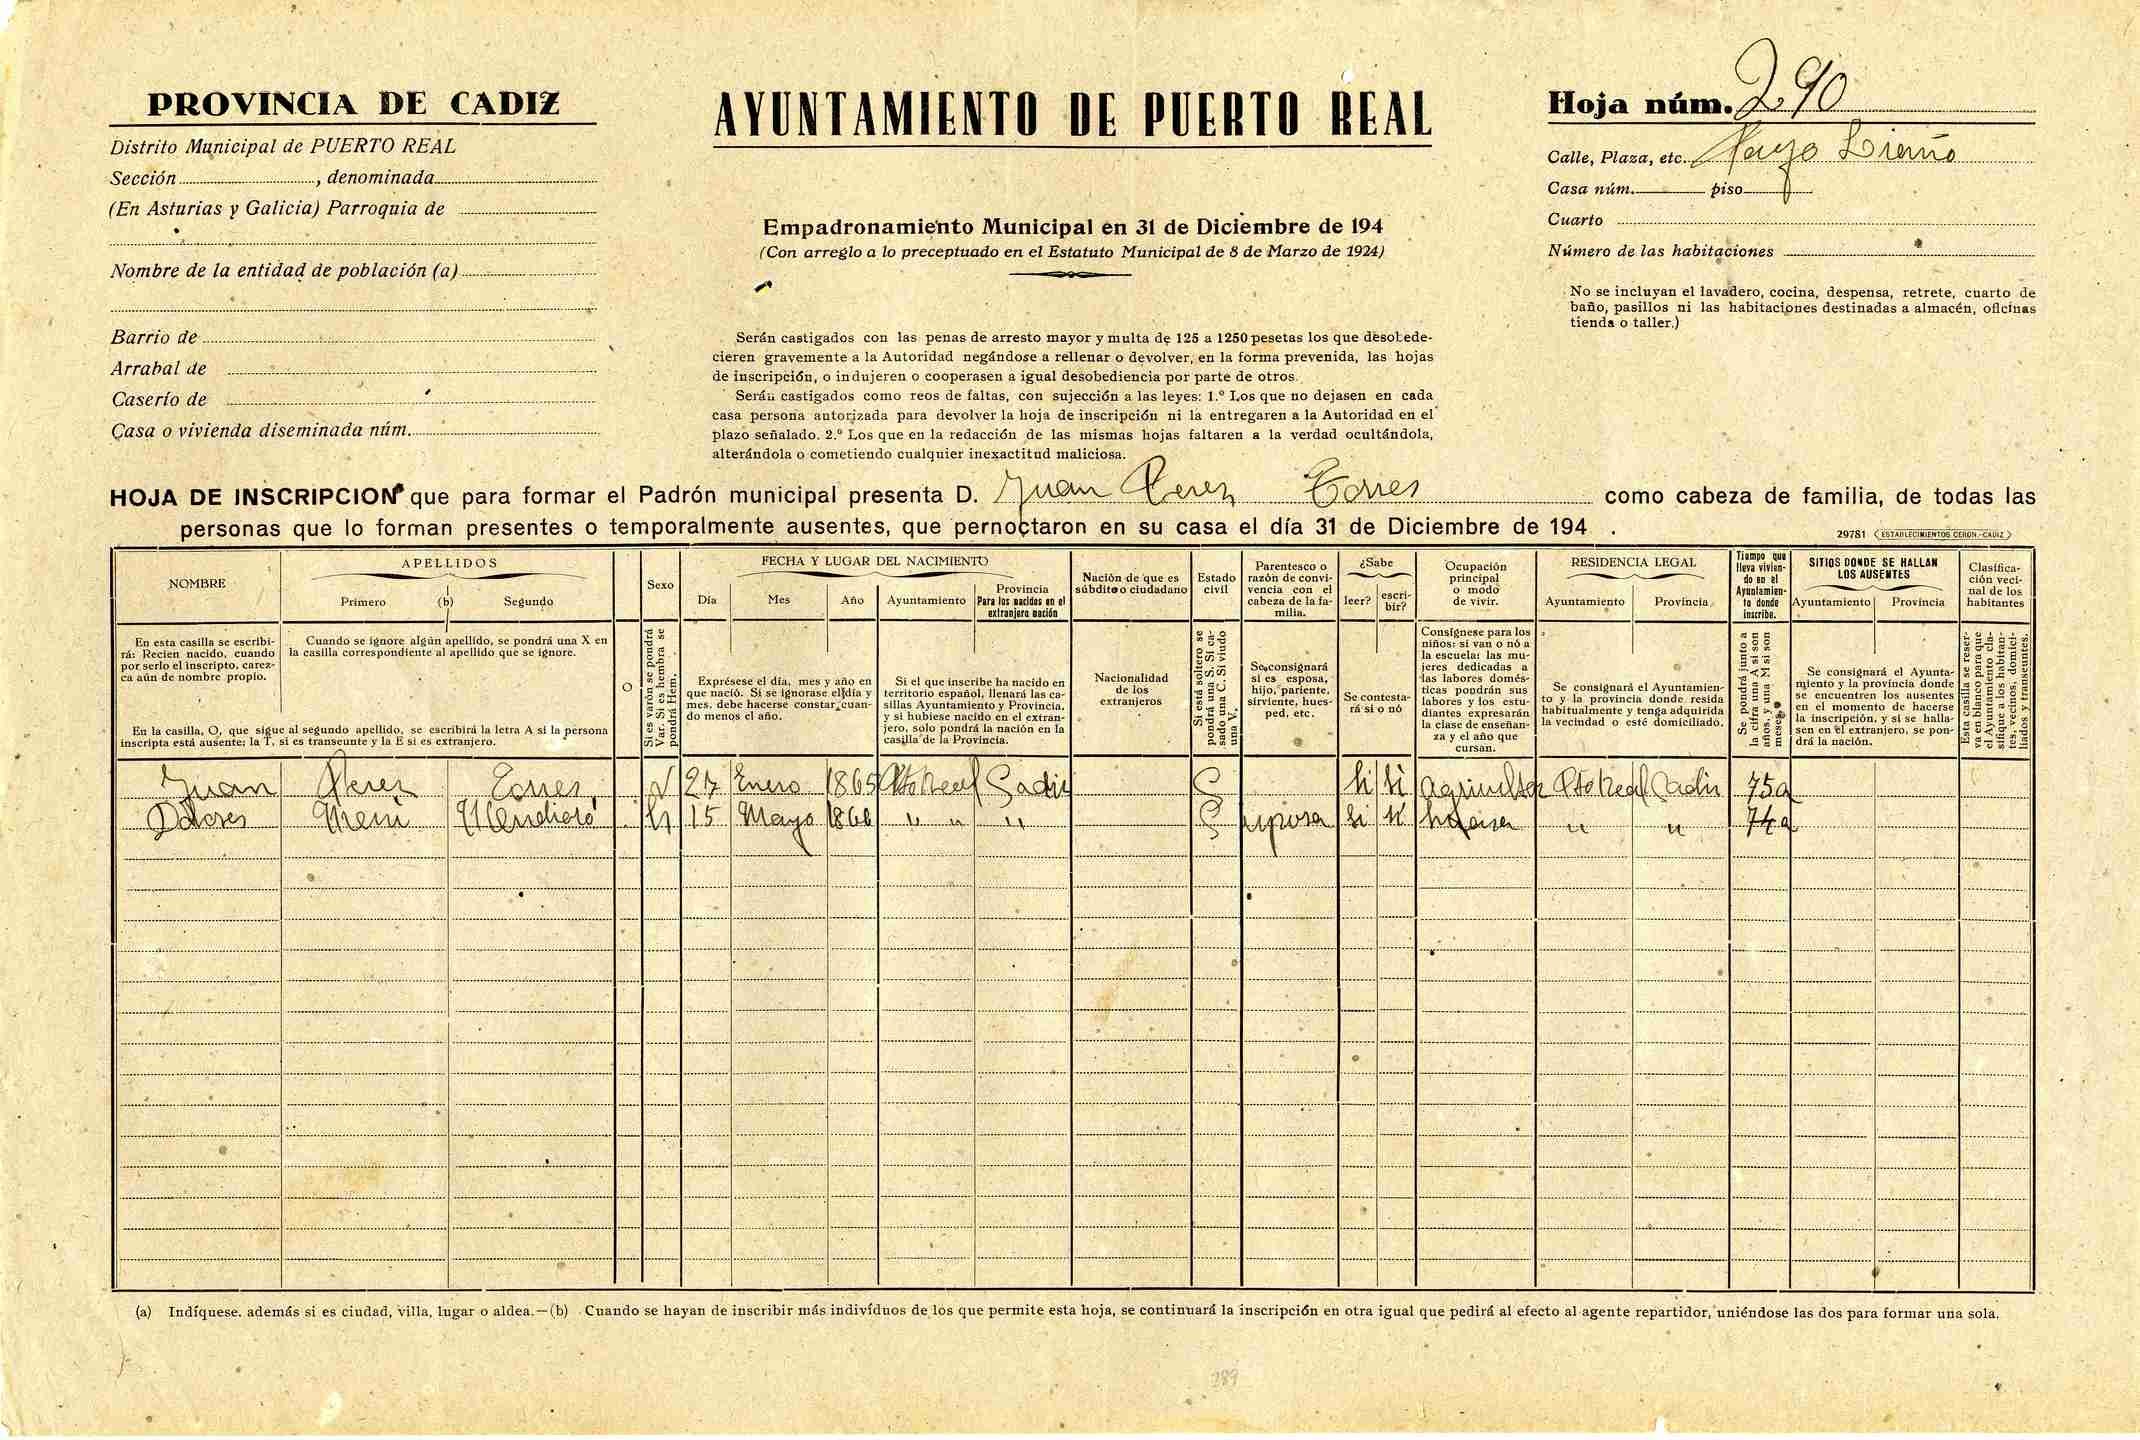 PROVINCIA DE CADIZ
Distrito Municipal de PUERTO REAL
Sección , denominada
(En Asturias y Galicia) Parroquia de
Nombre de la entidad de población (a)
Barrio de
Arrabal de
Caserío de
Casa o vivienda diseminada núm.
AYUNTAMIENTO DE PUERTO REAL
Empadronamiento Municipal en 31 de Diciembre de 194
(Con arreglo a lo preceptuado en el Estatuto Municipal de 8 de Marzo de 1924)
Serán castigados con las penas de arresto mayor y multa de 125 a 1250 pesetas los que desobede-
cieren gravemente a la Autoridad negándose a rellenar o devolver, en la forma prevenida, las hojas
de inscripción, o indujeren o cooperasen a igual desobediencia por parte de otros.
Serán castigados como reos de faltas, con sujección a las leyes: 1.º Los que no dejasen en cada
casa persona autorizada para devolver la hoja de inscripción ni la entregaren a la Autoridad en el
plazo señalado. 2.º Los que en la redacción de las mismas hojas faltaren a la verdad ocultándola,
alterándola o cometiendo cualquier inexactitud maliciosa.
Hoja núm. 290
Calle, Plaza, etc.
Casa núm. piso
Cuarto
Número de las habitaciones
No se incluyan el lavadero, cocina, despensa, retrete, cuarto de
baño, pasillos ni las habitaciones destinadas a almacén, oficinas
tienda o taller.)
HOJA DE INSCRIPCION que para formar el Padrón municipal presenta D. Juan Perez Torres como cabeza de familia, de todas las
personas que lo forman presentes o temporalmente ausentes, que pernoctaron en su casa el día 31 de Diciembre de 194 .
29781 (ESTABLECIMIENTOS CERON.-CADIZ)
NOMBRE
APELLIDOS
Primero (b) Segundo
O
Sexo
FECHA Y LUGAR DEL NACIMIENTO
Día Mes Año Ayuntamiento
Provincia
Para los nacidos en el
extranjero nación
Nación de que es
súbdito o ciudadano
Estado
civil
Parentesco o
razón de convi-
vencia con el
cabeza de la fa-
milia.
¿Sabe
leer? escri-
bir?
Ocupación
principal
o modo
de vivir.
RESIDENCIA LEGAL
Ayuntamiento Provincia
Tiempo que
lleva vivien-
do en el
Ayuntamien-
to donde
inscribe.
SITIOS DONDE SE HALLAN
LOS AUSENTES
Ayuntamiento Provincia
Clasifica-
ción veci-
nal de los
habitantes
En esta casilla se escribi-
rá: Recien nacido, cuando
por serlo el inscripto, carez-
ca aún de nombre propio.
Cuando se ignore algún apellido, se pondrá una X en
la casilla correspondiente al apellido que se ignore.
En la casilla, O, que sigue al segundo apellido, se escribirá la letra A si la persona
inscripta está ausente; la T, si es transeunte y la E si es extranjero.
Si es varón se pondrá
Var. Si es hembra se
pondrá Hem.
Exprésese el día, mes y año en
que nació. Si se ignorase el día y
mes, debe hacerse constar cuan-
do menos el año.
Si el que inscribe ha nacido en
territorio español, llenará las ca-
sillas Ayuntamiento y Provincia,
y si hubiese nacido en el extran-
jero, solo pondrá la nación en la
casilla de la Provincia.
Nacionalidad
de los
extranjeros
Si está soltero se
pondrá una S. Si ca-
sado una C. Si viudo
una V.
Se consignará
si es esposa,
hijo, pariente,
sirviente, hues-
ped, etc.
Se contesta-
rá si o nó
Consígnese para los
niños: si van o nó a
la escuela: las mu-
jeres dedicadas a
las labores domés-
ticas pondrán sus
labores y los estu-
diantes expresarán
la clase de enseñan-
za y el año que
cursan.
Se consignará el Ayuntamien-
to y la provincia donde resida
habitualmente y tenga adquirida
la vecindad o esté domiciliado.
Se pondrá junto a
la cifra una A si son
años, y una M si son
meses.
Se consignará el Ayunta-
miento y la provincia donde
se encuentren los ausentes
en el momento de hacerse
la inscripción, y si se halla-
sen en el extranjero, se pon-
drá la nación.
Esta casilla se reser-
va en blanco para que
el Ayuntamiento cla-
sifique a los habitan-
tes, vecinos, domici-
liados y transeuntes.
Juan Perez Torres V 27 Enero 1865 Pto Real Cadiz C si si agricultor Pto Real Cadiz 75 a
Dolores H 15 Mayo 186 " " " C esposa si si " " 74 a
(a) Indíquese. además si es ciudad, villa, lugar o aldea.—(b) Cuando se hayan de inscribir más indivíduos de los que permite esta hoja, se continuará la inscripción en otra igual que pedirá al efecto al agente repartidor, uniéndose las dos para formar una sola.
289